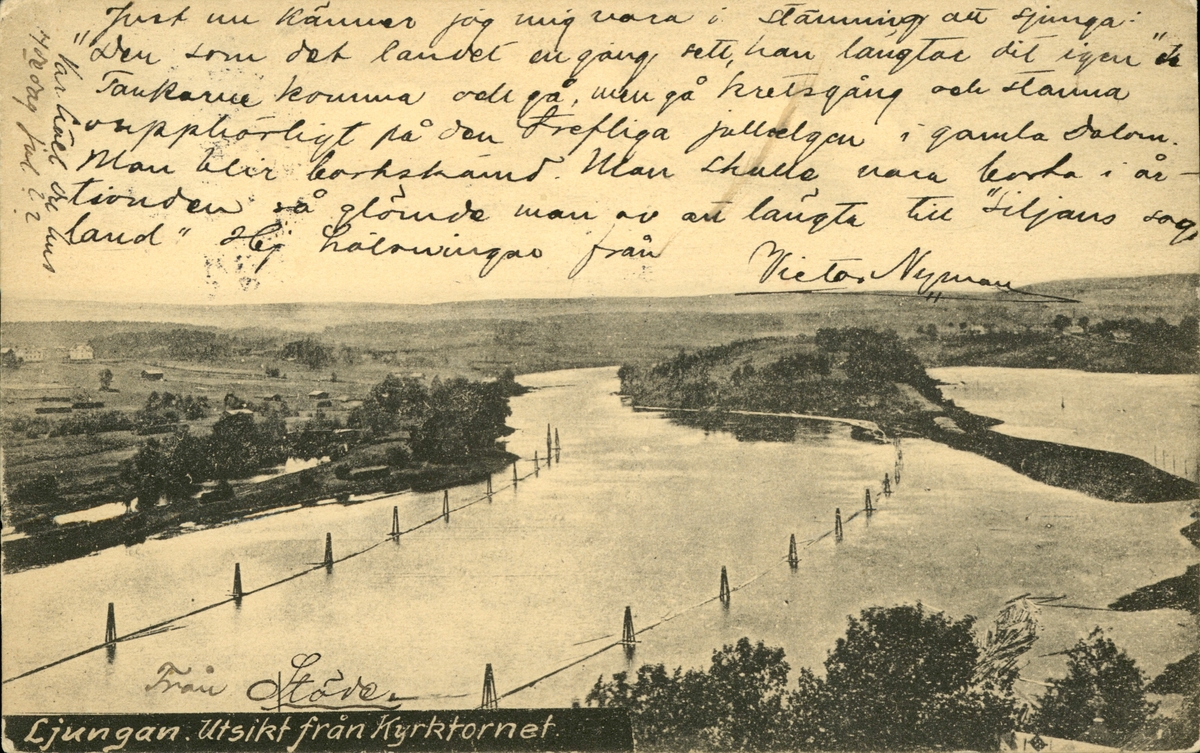 Just nu känner jag mig vara i stämning att sjunga:
"Den som det landet en gång sett, han längtar dit igen"
Tankarne komma och gå, men gå kretsgång och stanna
oupphörligt på den trefliga julhelgen i gamla Dalom.
Man blir bortskämd. Man skulle vara borta i år-
tionden så glömde man av att längta till "Siljans sago
land" Hej hälsningar från
Victor Nyman
Från Stöde.
Ljungan. Utsikt från Kyrktornet.